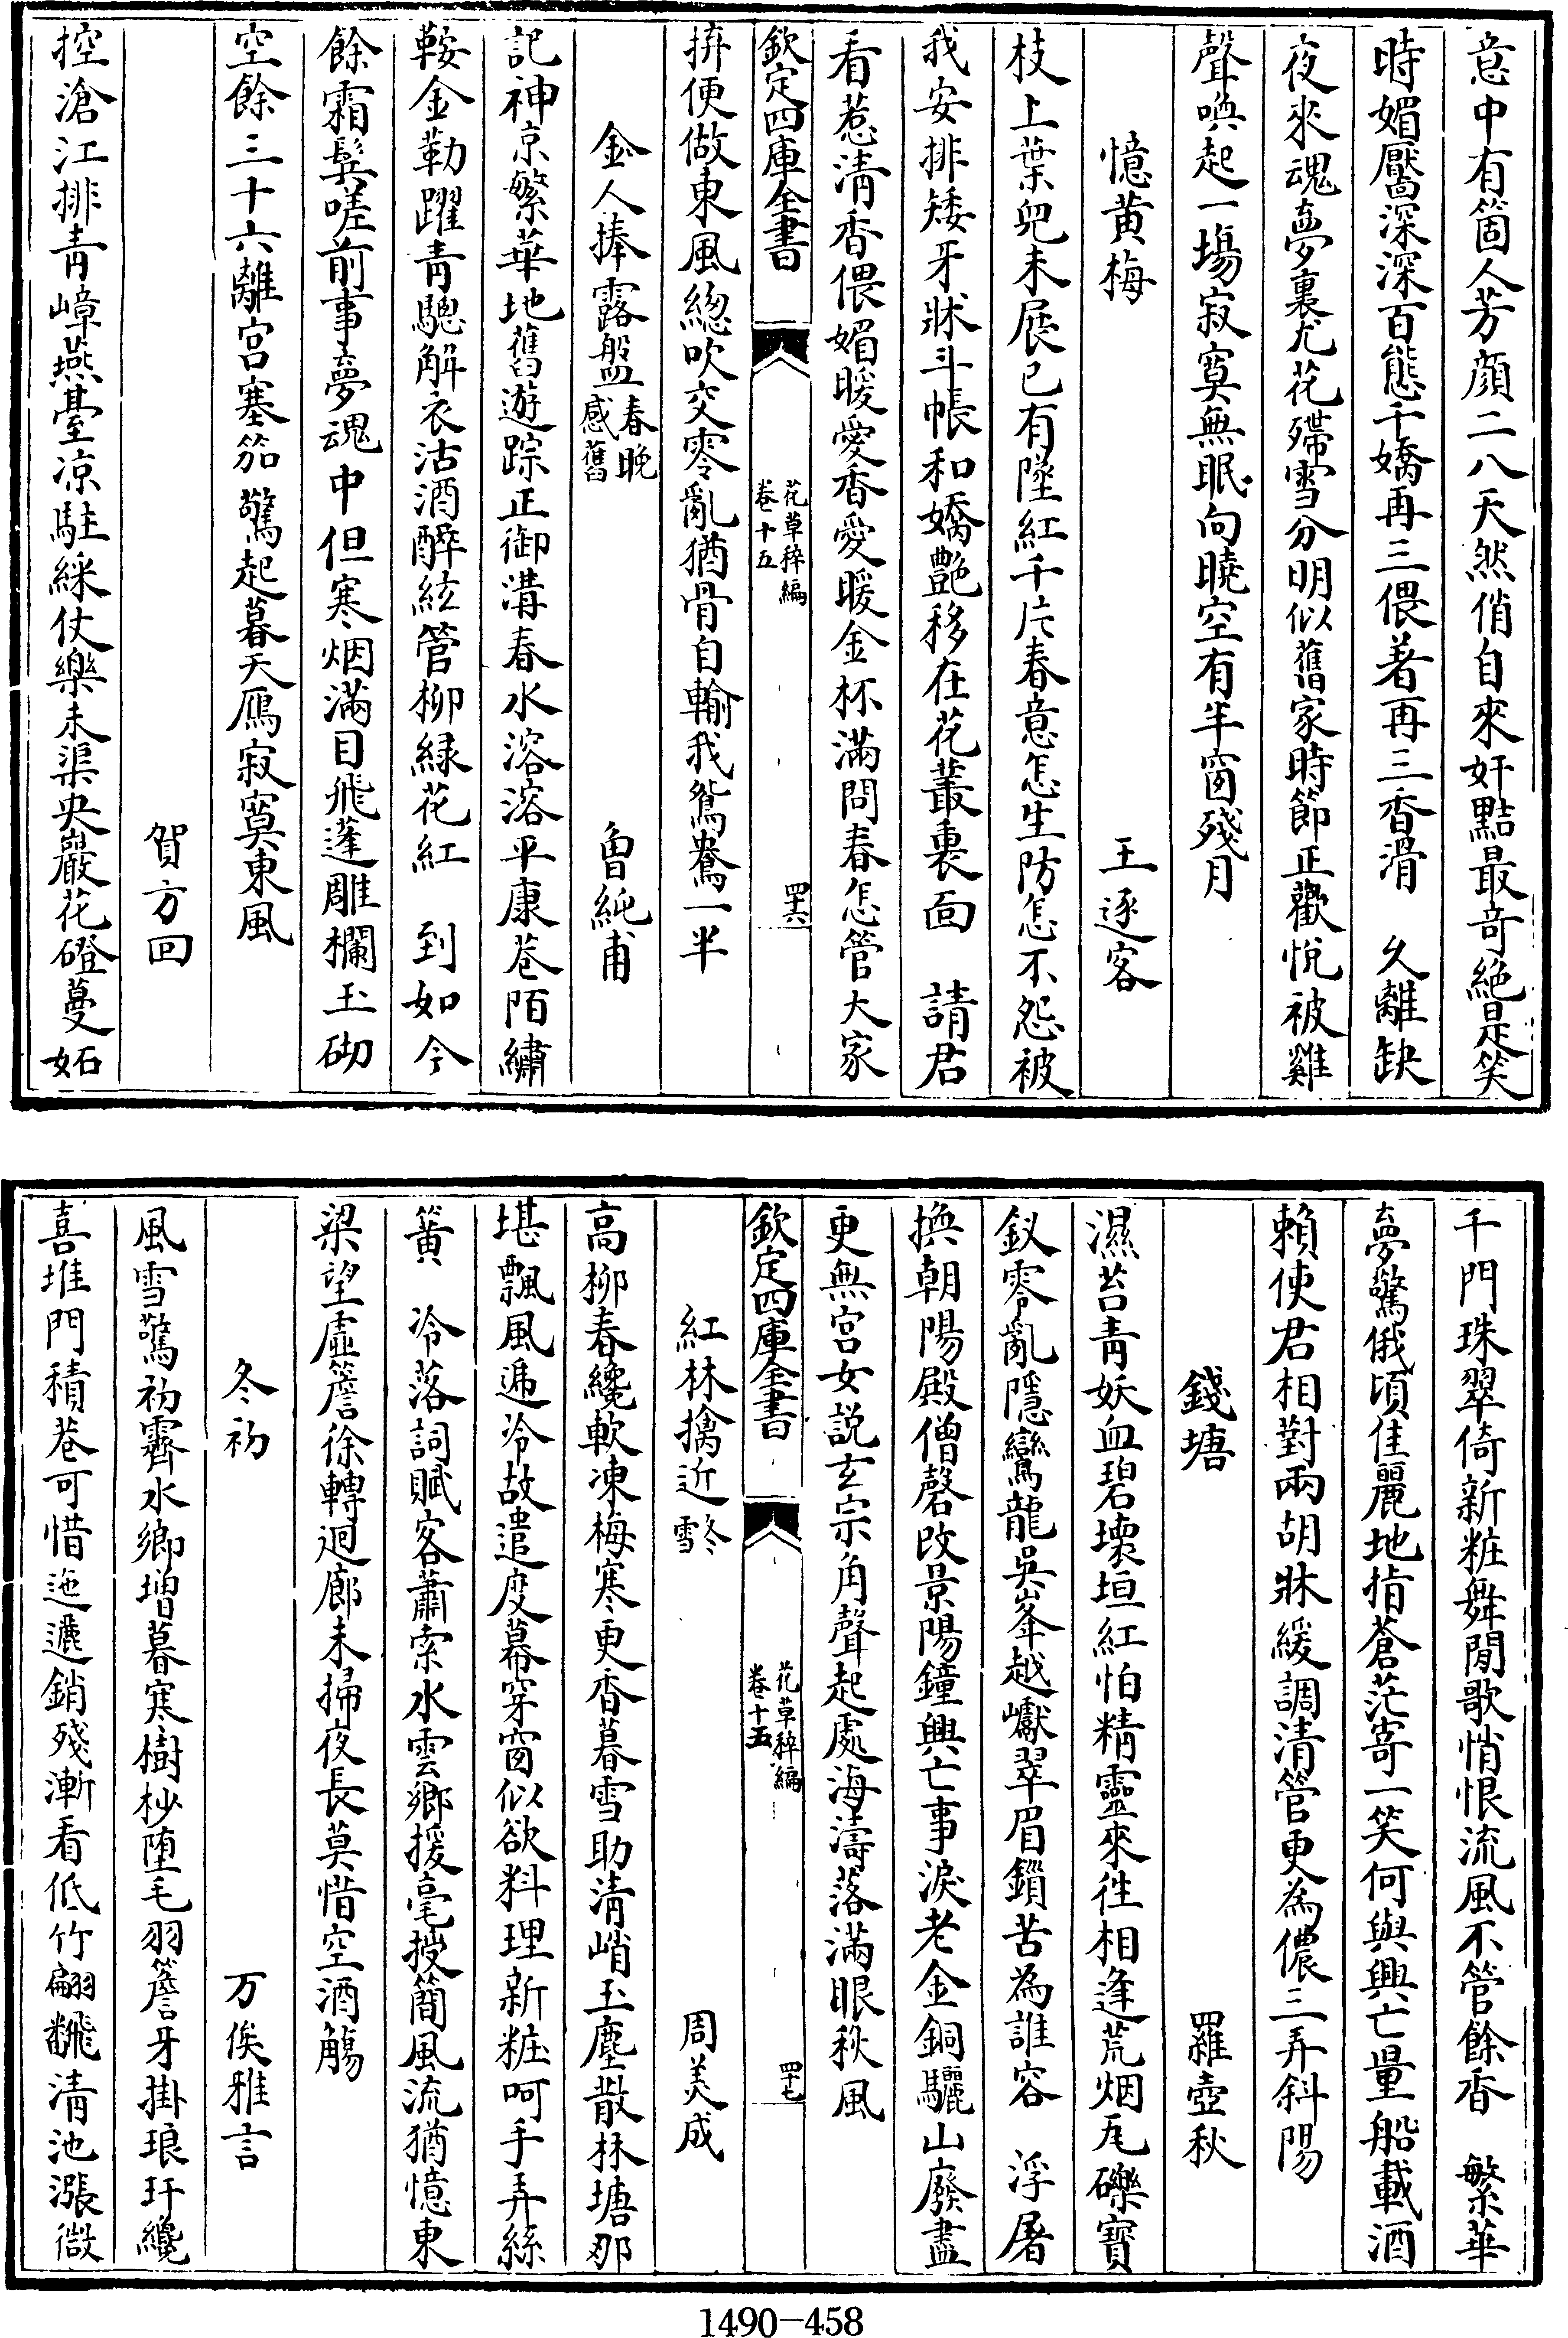 意中有箇人芳顔二八天然俏自來奸黠最竒絶是笑
時媚靨深深百態千嬌再三偎著再三香滑　久離缺
夜來魂夢裏尤花殢雪分明似舊家時節正歡悅被雞
聲喚起一塲寂寞無眠向曉空有半窗殘月
憶黄梅　王逐客
枝上葉兒未展已有墜紅千片春意怎生防怎不怨被
我安排矮牙牀斗帳和嬌艷移在花叢裏面　請君
看惹清香偎媚暖愛香愛暖金杯滿問春怎管大家
欽定四庫全書　花草稡編　卷十五　四十六
拚便做東風總吹交零亂猶骨自輸我鴛鴦一半
金人捧露盤春晚感舊　曾純甫
記神京繁華地舊遊踪正御溝春水溶溶平康巷陌繡
鞍金勒躍青驄解衣沽酒醉絃管柳緑花紅　到如今
餘霜鬂嗟前事夢魂中但寒烟滿目飛蓬雕欄玉砌
空餘三十六離宫塞笳驚起暮天鴈寂寞東風
賀方回
控滄江排青嶂燕臺凉駐綵仗樂未渠央巖花磴蔓妬
千門珠翠倚新粧舞閒歌悄恨流風不管餘香　繁華
夢驚俄頃佳麗地指蒼茫寄一笑何與興亡量船載酒
賴使君相對兩胡牀緩調清管更為儂三弄斜陽
錢塘　羅壺秋
濕苔青妖血碧壞垣紅怕精靈來徃相逢荒烟瓦礫寳
釵零亂隱鸞龍吳峯越巘翠眉鎖苦為誰容　浮屠
換朝陽殿僧磬改景陽鐘興亡事淚老金銅驪山廢盡
更無宫女説玄宗角聲起處海濤落滿眼秋風
欽定四庫全書　花草稡編　卷十五　四十七
紅林擒近冬雪　周美成
高柳春纔軟凍梅寒更香暮雪助清峭玉塵散林塘那
堪飄風逓冷故遣度幕穿窗似欲料理新粧呵手弄絲
簧　冷落詞賦客蕭索水雲鄉援毫授簡風流猶憶東
梁望虚簷徐轉迴廊未掃夜長莫惜空酒觴
冬初　万俟雅言
風雪驚初霽水鄉增暮寒樹杪堕毛羽簷牙掛琅玕纔
喜堆門積巷可惜迤邐銷殘漸看低竹翩飜清池漲微
1490-458